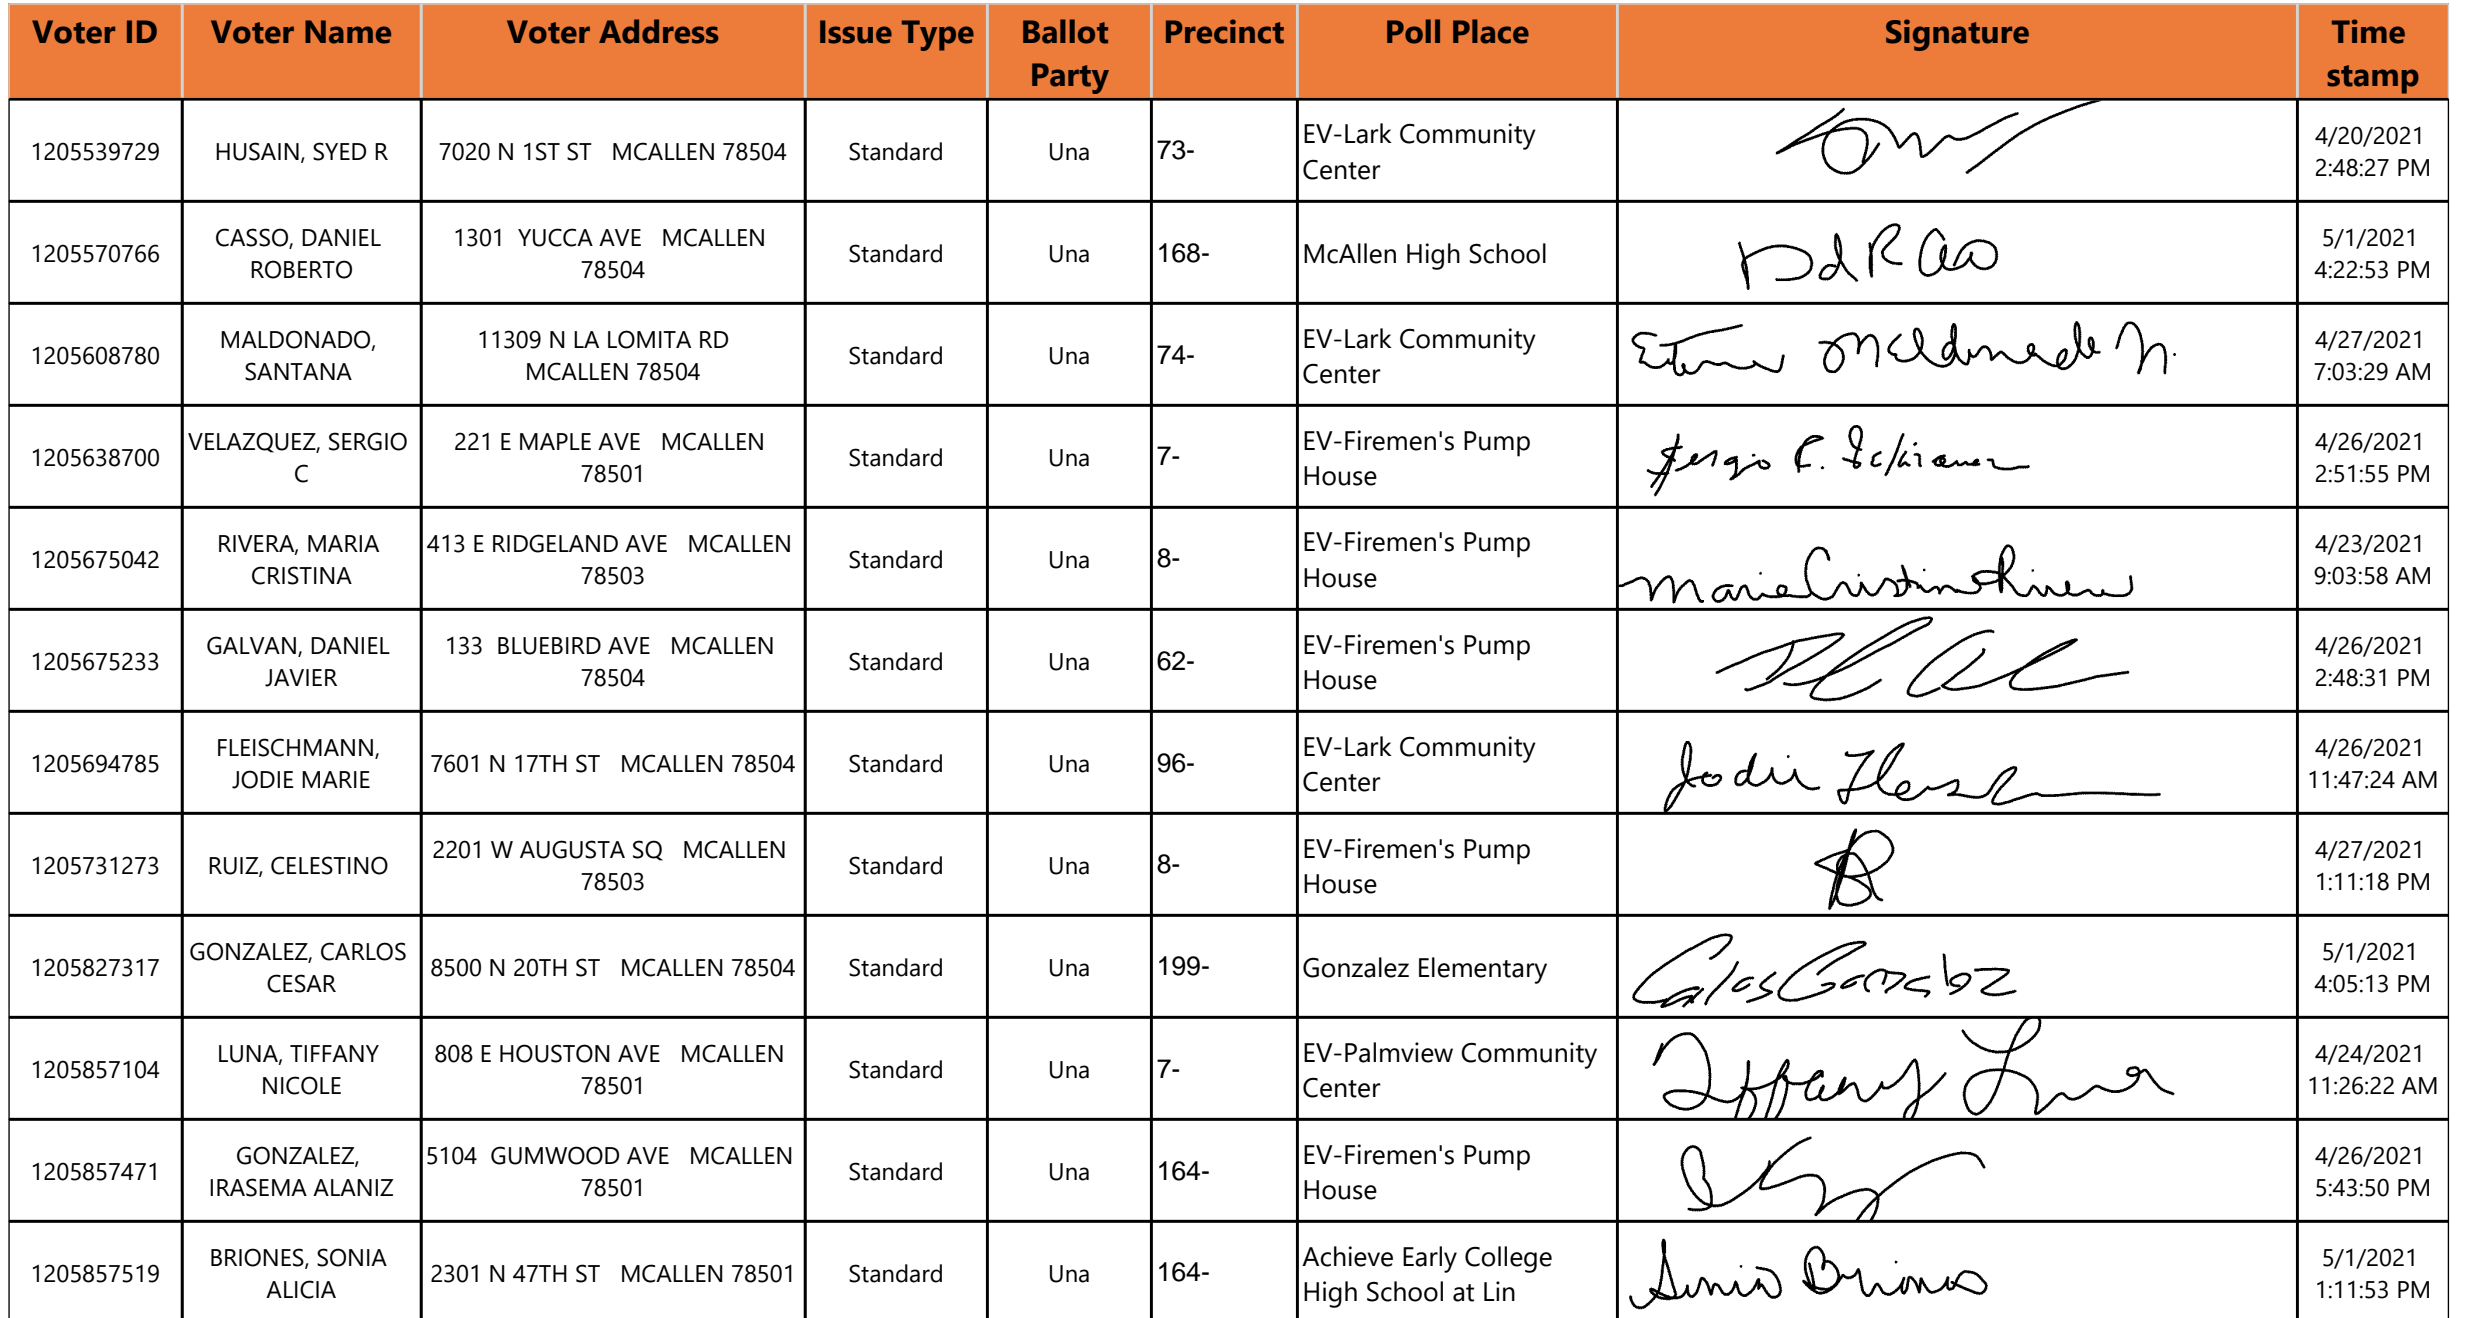 Voter ID Voter Name Voter Address Issue Type Ballot Party Precinct Poll Place Signature Time stamp
1205539729 HUSAIN, SYED R 7020 N 1ST ST MCALLEN 78504 Standard Una 73- EV-Lark Community Center 4/20/2021 2:48:27 PM
1205570766 CASSO, DANIEL ROBERTO 1301 YUCCA AVE MCALLEN 78504 Standard Una 168- McAllen High School 5/1/2021 4:22:53 PM
1205608780 MALDONADO, SANTANA 11309 N LA LOMITA RD MCALLEN 78504 Standard Una 74- EV-Lark Community Center Maldonado 4/27/2021 7:03:29 AM
1205638700 VELAZQUEZ, SERGIO C 221 E MAPLE AVE MCALLEN 78501 Standard Una 7- EV-Firemen's Pump House Sergio C. 4/26/2021 2:51:55 PM
1205675042 RIVERA, MARIA CRISTINA 413 E RIDGELAND AVE MCALLEN 78503 Standard Una 8- EV-Firemen's Pump House Maria Cristina Rivera 4/23/2021 9:03:58 AM
1205675233 GALVAN, DANIEL JAVIER 133 BLUEBIRD AVE MCALLEN 78504 Standard Una 62- EV-Firemen's Pump House 4/26/2021 2:48:31 PM
1205694785 FLEISCHMANN, JODIE MARIE 7601 N 17TH ST MCALLEN 78504 Standard Una 96- EV-Lark Community Center Jodie 4/26/2021 11:47:24 AM
1205731273 RUIZ, CELESTINO 2201 W AUGUSTA SQ MCALLEN 78503 Standard Una 8- EV-Firemen's Pump House 4/27/2021 1:11:18 PM
1205827317 GONZALEZ, CARLOS CESAR 8500 N 20TH ST MCALLEN 78504 Standard Una 199- Gonzalez Elementary Carlos Gonzalez 5/1/2021 4:05:13 PM
1205857104 LUNA, TIFFANY NICOLE 808 E HOUSTON AVE MCALLEN 78501 Standard Una 7- EV-Palmview Community Center Tiffany Luna 4/24/2021 11:26:22 AM
1205857471 GONZALEZ, IRASEMA ALANIZ 5104 GUMWOOD AVE MCALLEN 78501 Standard Una 164- EV-Firemen's Pump House 4/26/2021 5:43:50 PM
1205857519 BRIONES, SONIA ALICIA 2301 N 47TH ST MCALLEN 78501 Standard Una 164- Achieve Early College High School at Lin Sonia Briones 5/1/2021 1:11:53 PM